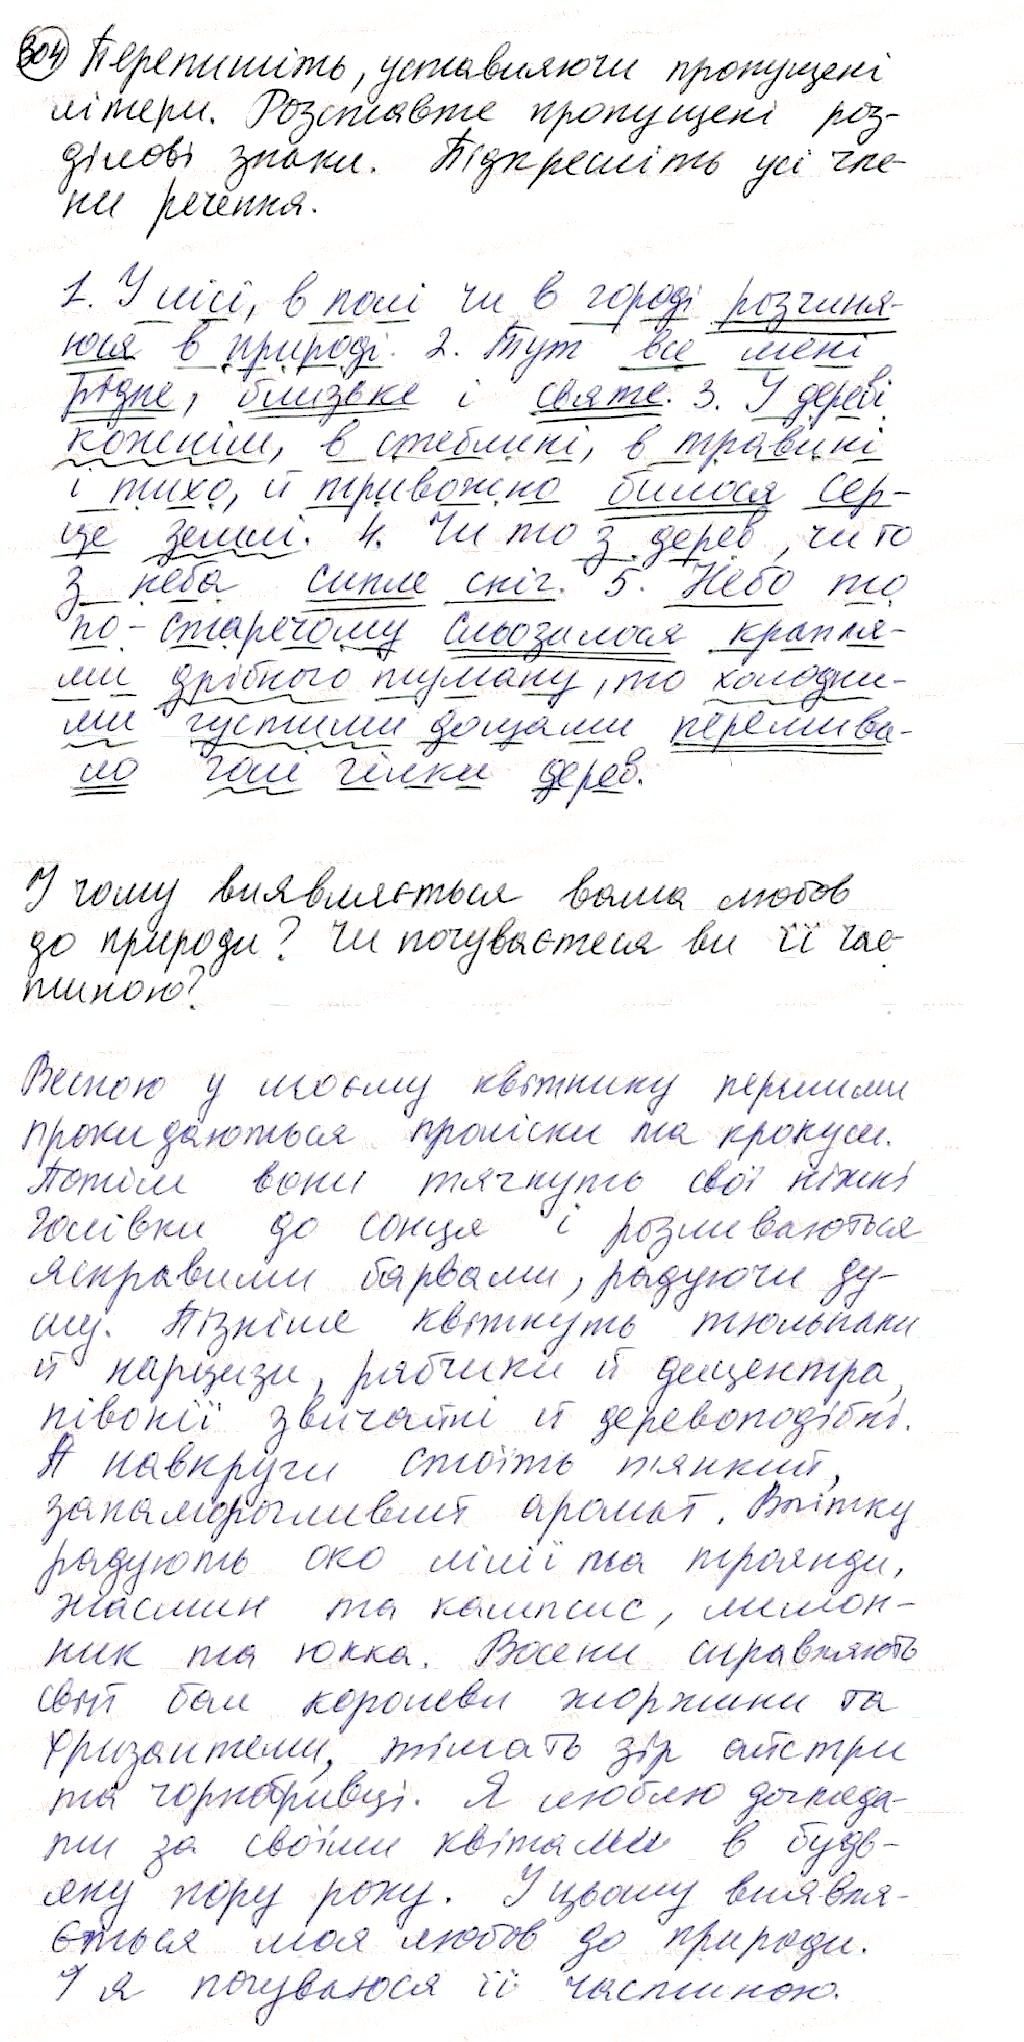 304 Перепишіть, уставляючи пропущені
літери. Розставте пропущені роз-
ділові знаки. Підкресліть усі чле-
ни речення.
1. У лісі, в полі чи в городі розчиня-
юся в природі. 2. Тут все мені
рідне, близьке і святе. 3. У дереві
кожнім, в стеблині, в травині
і тихо, й тривожно билося сер-
це землі. 4. Чи то з дерев, чи то
з неба сипле сніг. 5. Небо то
по-старечому сльозилося крапля-
ми дрібного туману, то холодни-
ми густими дощами перемива-
ло голі гілки дерев.
У чому виявляється ваша любов
до природи? Чи почуваєтеся ви її час-
тиною?
Весною у моєму квітнику першими
прокидаються проліски та крокуси.
Потім вони тягнуть свої ніжні
голівки до сонця і розливаються
яскравими барвами, радуючи ду-
шу. Пізніше квітнуть тюльпани
й нарцизи, рябчики й дицентра,
півонії звичайні й деревоподібні.
А навкруги стоїть п'янкий,
запаморочливий аромат. Влітку
радують око лілії та троянди,
жасмин та кампсис, лимон-
ник та юкка. Восени справляють
свій бал королеви жоржини та
хризантеми, тішать зір айстри
та чорнобривці. Я люблю догляда-
ти за своїми квітами в будь-
яку пору року. У цьому виявля-
ється моя любов до природи.
І я почуваюся її частиною.